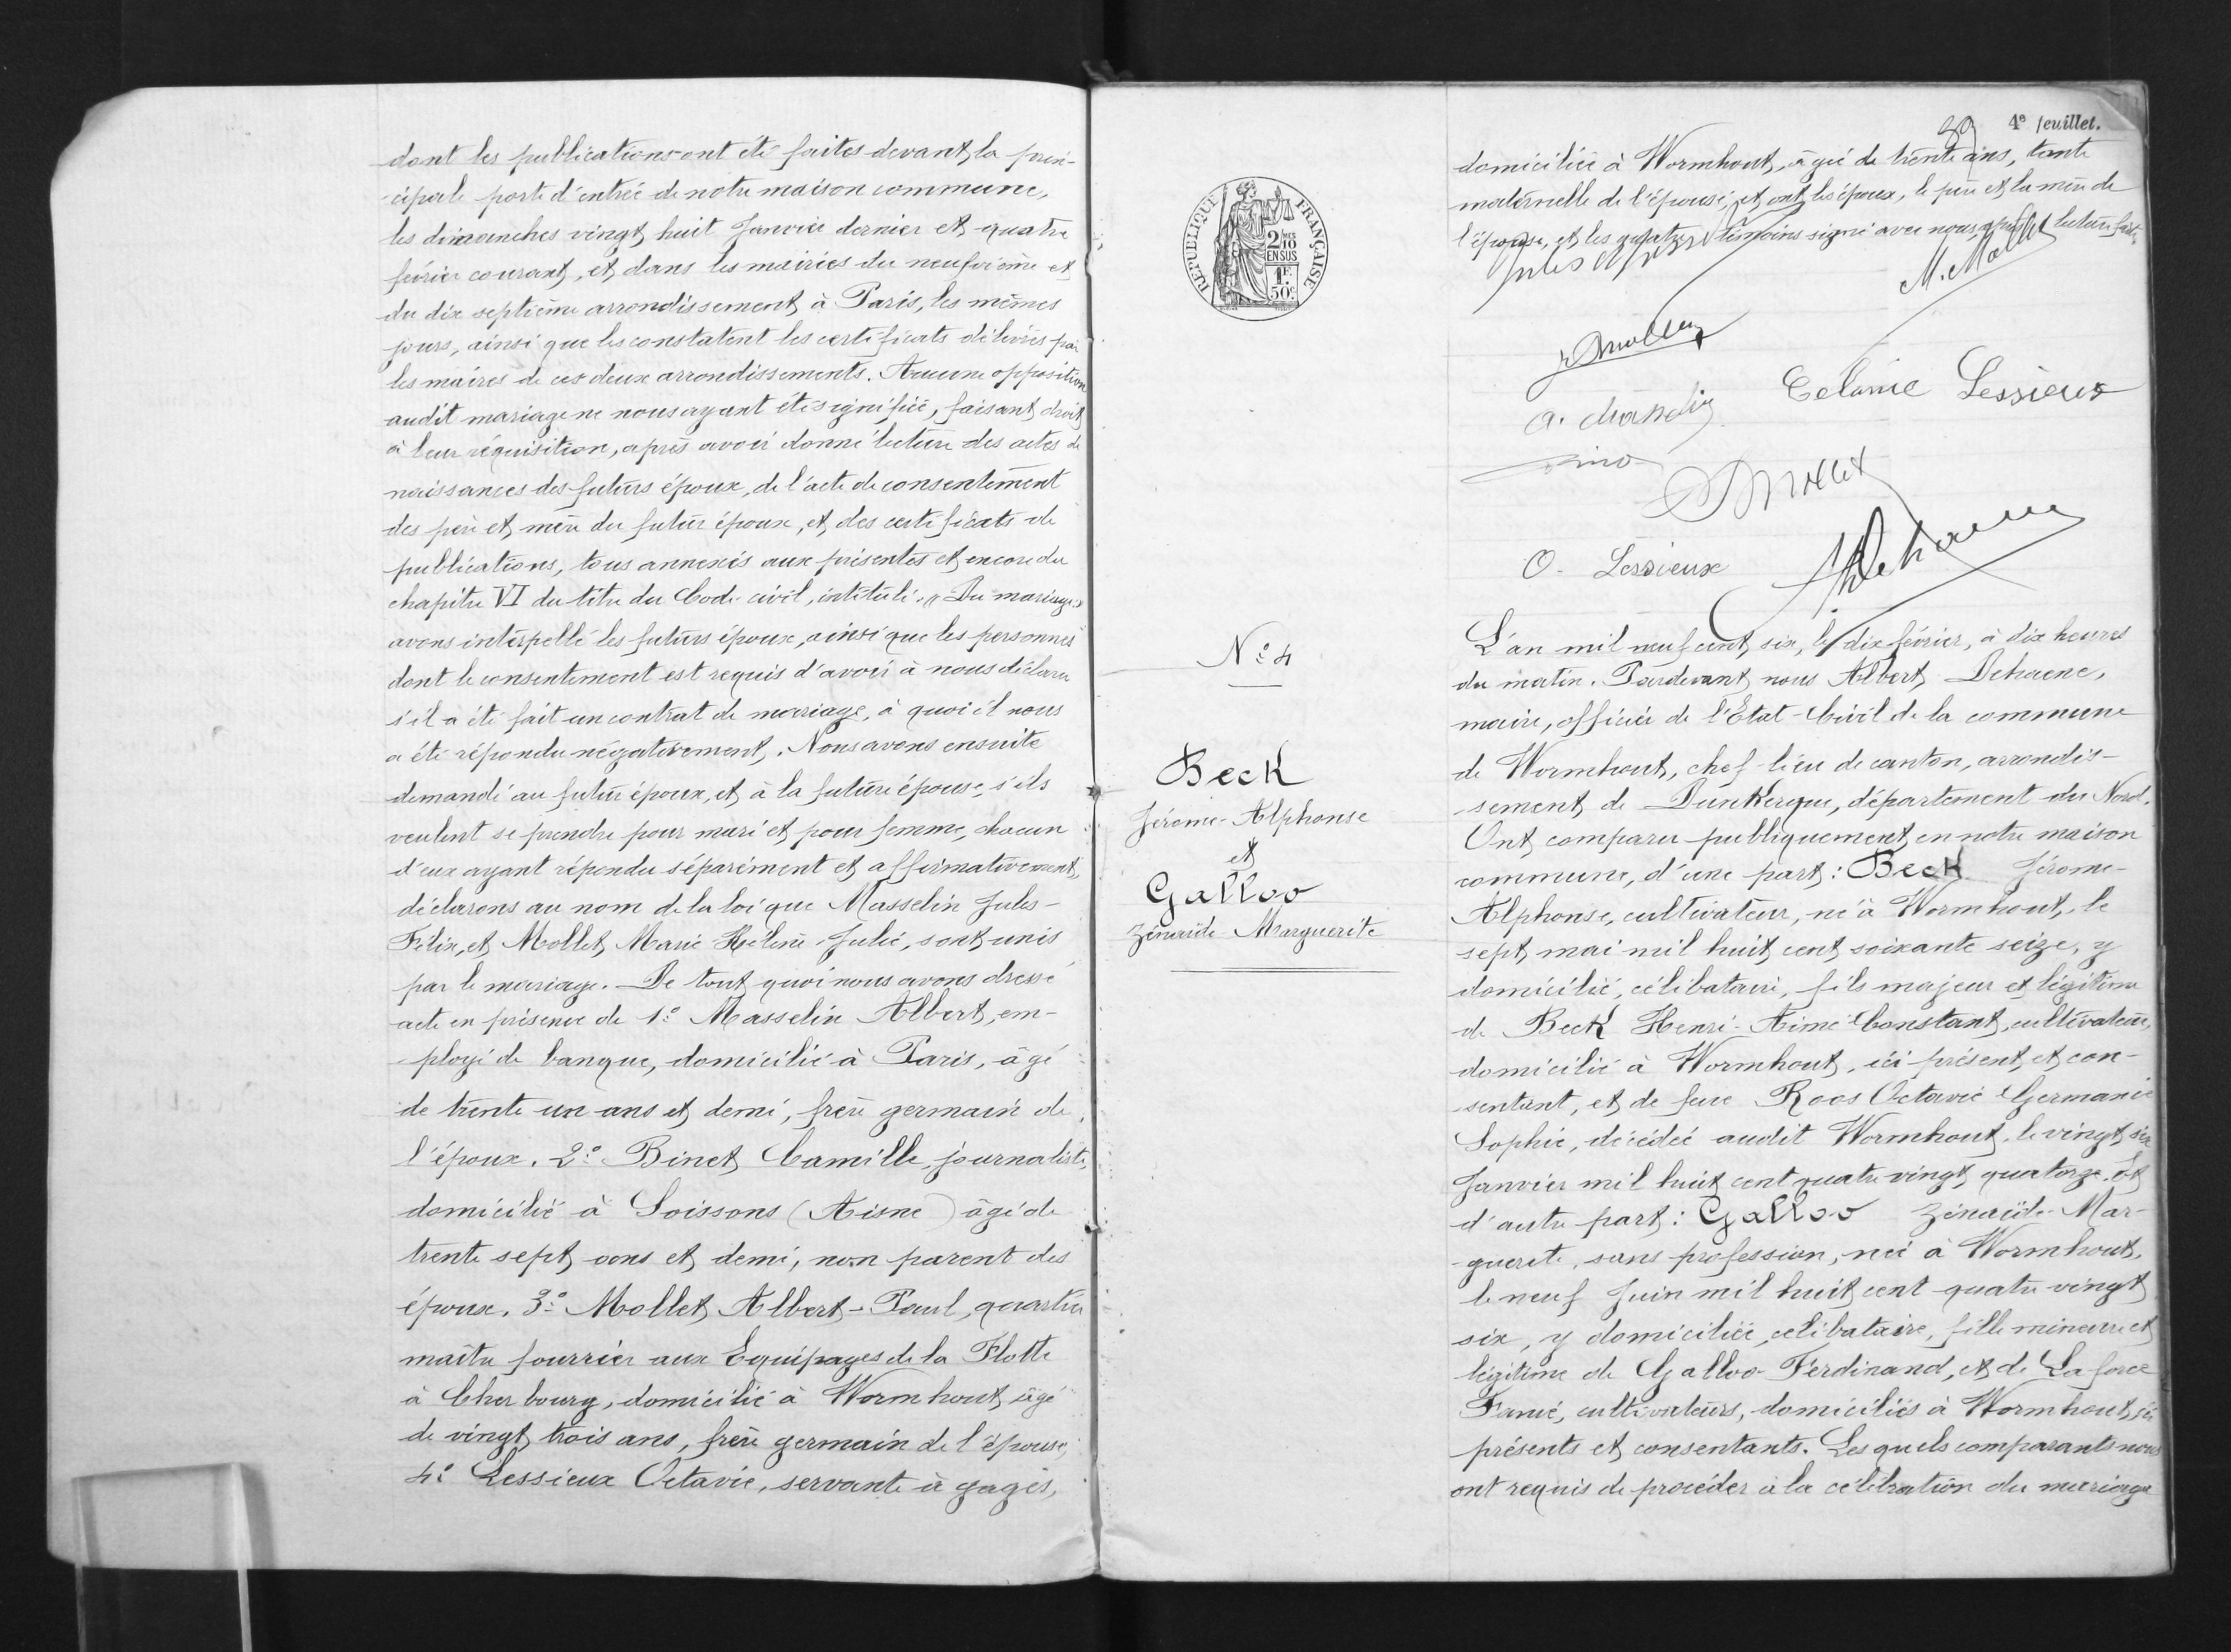 dont les publications ont été faites devant la prin-
cipale porte d'entrée de notre maison commune,
les dimanches vingt huit Janvier dernier et quatre
février courant, et dans les mairies du neuvième et
du dix septième arrondissement à Paris, les mêmes
jours, ainsi que les constatent les certificats délivrés par
les maires de ces deux arrondissements. Aucune opposition
audit mariage ne nous ayant été signifiée, faisant droit
à leur réquisition, après avoir donné lecture des actes de
naissances des futurs époux, de l'acte de consentement
des père et mère du futur époux, et des certificats de
publications, tous annexés aux présentes et encore du
chapitre VI du titre du Code civil, intitulé « Du mariage »
avons interpellé les futurs époux, ainsi que les personnes
dont le consentement est requis d'avoir à nous déclarer
s'il a été fait un contrat de mariage, à quoi il nous
a été répondu négativement. Nous avons ensuite
demandé au futur époux, et à la future épouse, s'ils
veulent se prendre pour mari et pour femme, chacun
d'eux ayant répondu séparément et affirmativement,
déclarons au nom de la loi que Masselin Jules-
Félix, et Mollet Marie Hélène Julie, sont unis
par le mariage. De tout quoi nous avons dressé
acte en présence de 1° Masselin Albert, em-
ployé de banque, domicilié à Paris, âgé
de trente un ans et demi, frère germain de
l'époux. 2° Binet Camille, journaliste,
domicilié à Soissons (Aisne) âgé de
trente sept ans et demi, non parent des
époux. 3° Mollet Albert-Paul, quartier
maître fourrier aux Equipages de la Flotte
à Cherbourg, domicilié à Wormhout, âgé
de vingt trois ans, frère germain de l'épouse,
4° Lessieux Octavie, servante à gages,
4e feuillet.
39
domiciliée à Wormhout, âgée de trente ans, tante
maternelle de l'épouse, et ont les époux, le père et la mère de
l'épouse, et les quatre témoins signé avec nous, après lecture faite
M. Mollet
Celanie Lessieux
O. Lessieux
RÉPUBLIQUE FRANÇAISE
2 MES
10
EN SUS
1F.
50c.
N° 4
Beck
Jérome-Alphonse
et
Galloo
Zénaïde-Marguerite
L'an mil neuf cent six, le dix février, à dix heures
du matin. Pardevant nous Albert Dehaene,
maire, officier de l'Etat-Civil de la commune
de Wormhout, chef-lieu de canton, arrondis-
sement de Dunkerque, département du Nord.
Ont comparu publiquement en notre maison
commune, d'une part : Beck Jérome-
Alphonse, cultivateur, né à Wormhout, le
sept mai mil huit cent soixante seize, y
domicilié, célibataire, fils majeur et légitime
de Beck Henri-Aimé Constant, cultivateur,
domicilié à Wormhout, ici présent et con-
sentant, et de feue Roos Octavie Germanie
Sophie, décédée audit Wormhout, le vingt six
Janvier mil huit cent quatre vingt quatorze. Et
d'autre part : Galloo Zénaïde-Mar-
guerite, sans profession, née à Wormhout,
le neuf Juin mil huit cent quatre vingt
six, y domiciliée, célibataire, fille mineure et
légitime de Galloo Ferdinand, et de Laforce
Fanie, cultivateurs, domiciliés à Wormhout, ici
présents et consentants. Lesquels comparants nous
ont requis de procéder à la célébration du mariage